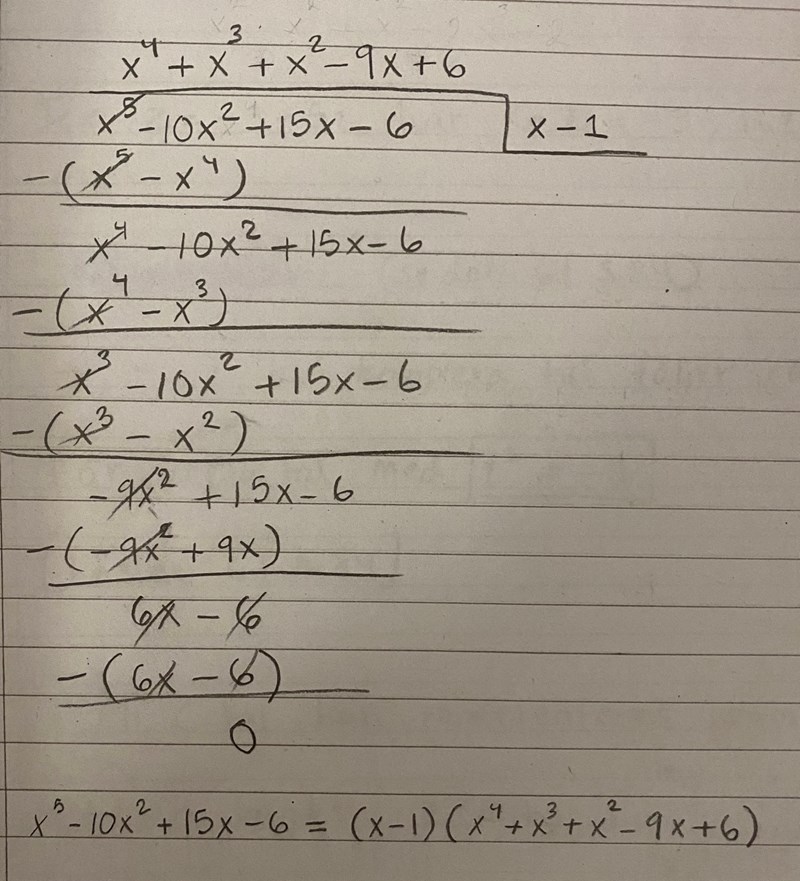 x⁴ + x³ + x² - 9x + 6
x⁵ - 10x² + 15x - 6 | x - 1
- (x⁵ - x⁴)
x⁴ - 10x² + 15x - 6
- (x⁴ - x³)
x³ - 10x² + 15x - 6
- (x³ - x²)
- 9x² + 15x - 6
- (-9x² + 9x)
6x - 6
- (6x - 6)
0
x⁵ - 10x² + 15x - 6 = (x-1)(x⁴ + x³ + x² - 9x + 6)